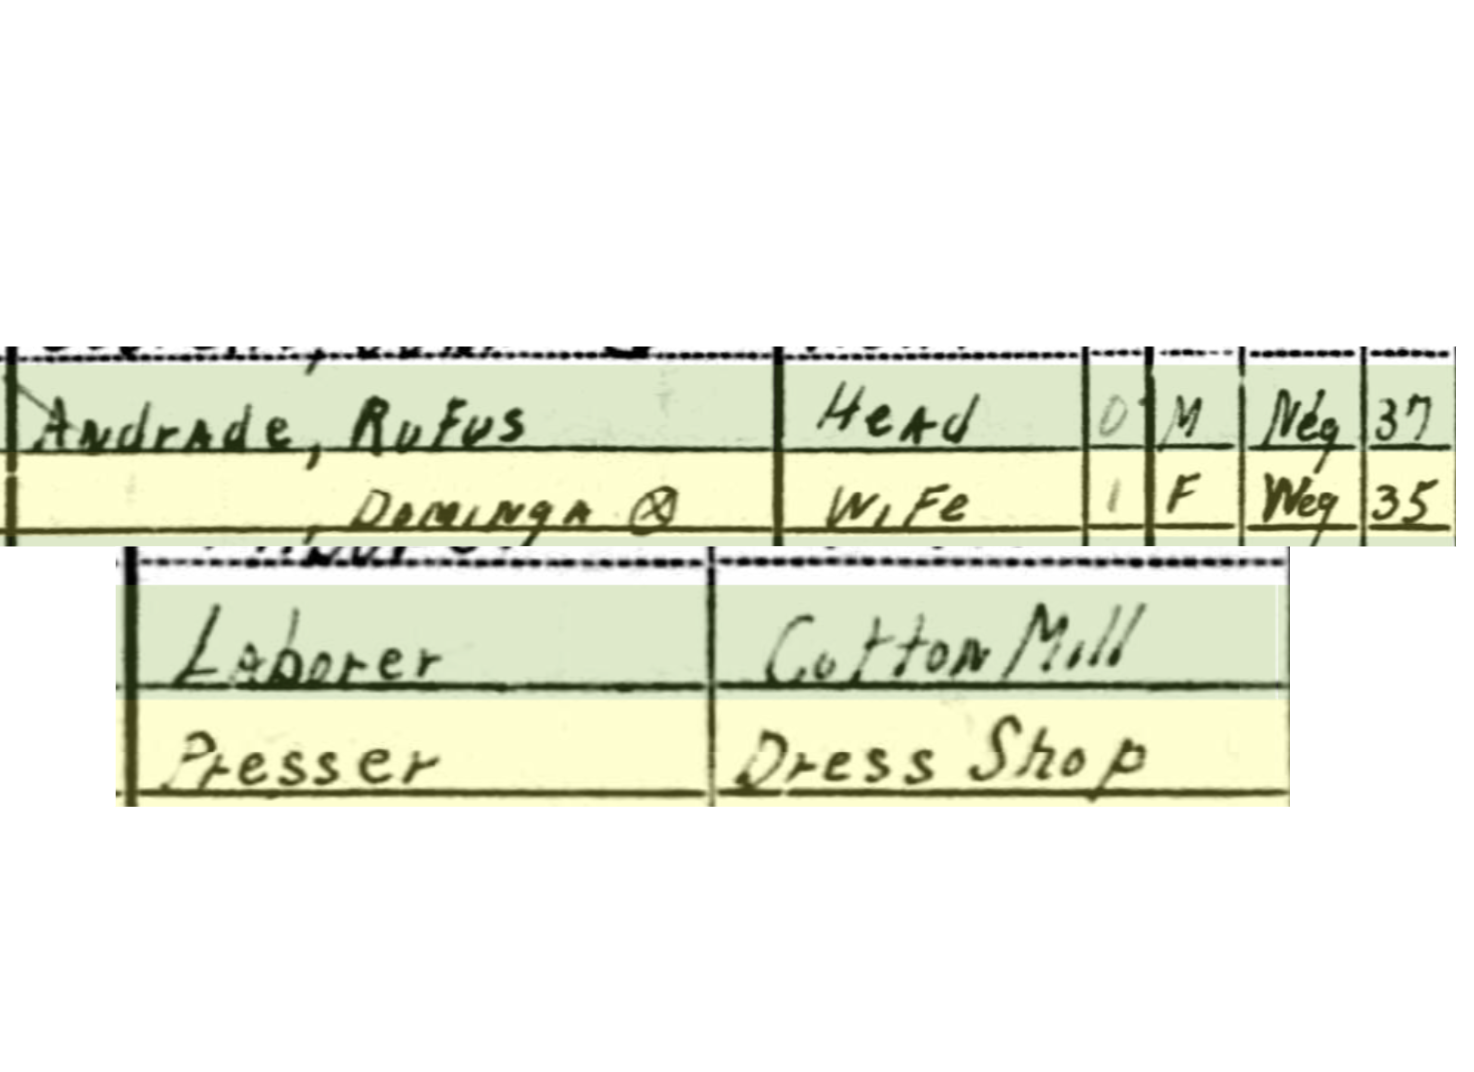 Andrade, Rufus Head 0 M Neg 37
Dominga ⓧ Wife 1 F Neg 35
Laborer Cotton Mill
Presser Dress Shop